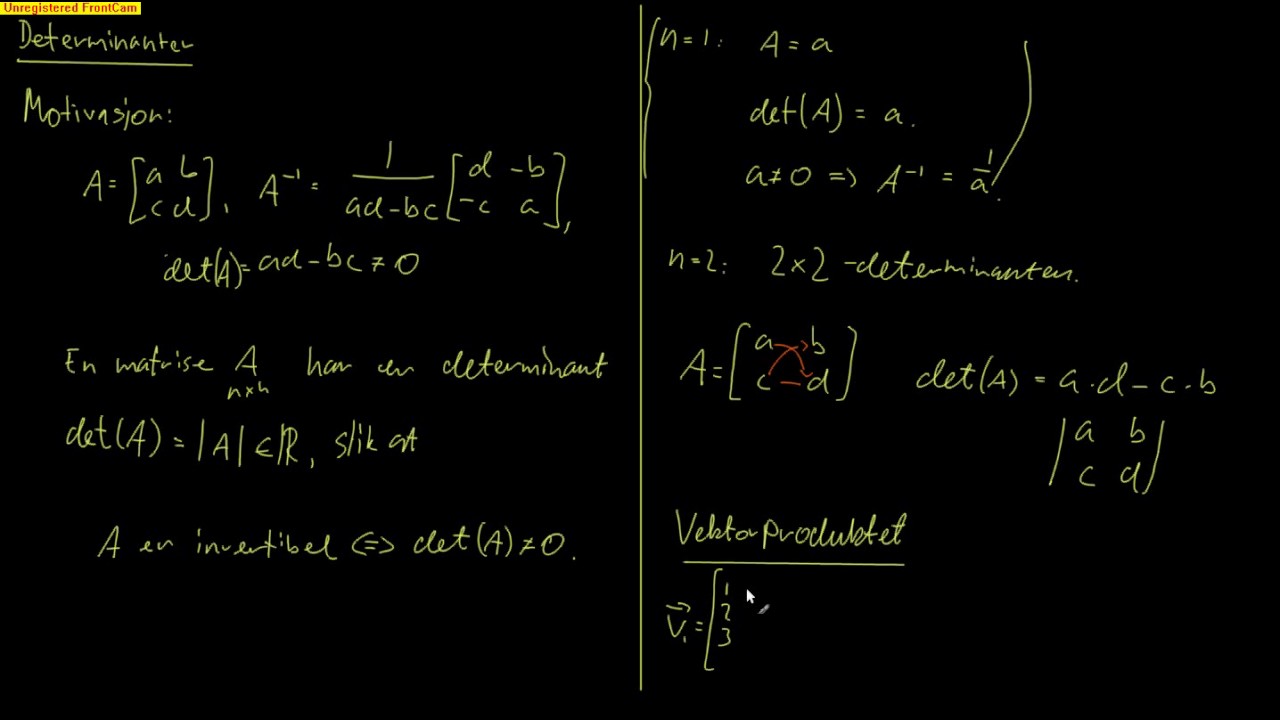 Unregistered FrontCam
Determinanter
Motivasjon:
A = [a b; c d], A⁻¹ = 1/(ad-bc) [d -b; -c a],
det(A) = ad - bc ≠ 0
En matrise A har en determinant
n×n
det(A) = |A| ∈ ℝ, slik at
A er invertibel ⇔ det(A) ≠ 0.
n=1: A = a
det(A) = a.
a ≠ 0 => A⁻¹ = 1/a.
n=2: 2×2-determinanten.
A = [a b; c d] det(A) = a·d - c·b
|a b; c d|
Vektorproduktet
v⃗₁ = [1 2 3